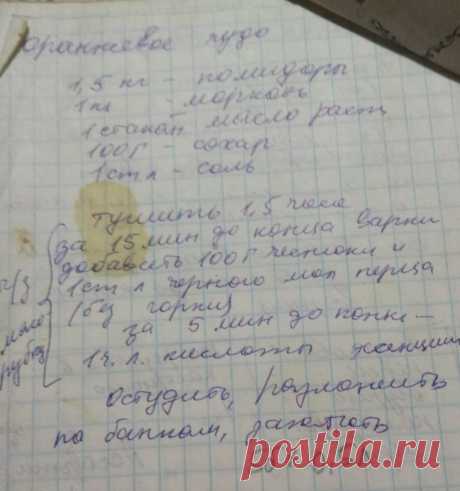 оранжевое чудо
1,5 кг - помидоры
1 кг - морковь
1 стакан масло раст
100 г - сахар
1 ст л - соль
тушить 1,5 часа
за 15 мин до конца варки
добавить 100 г чеснока и
1 ст л черного мол перца
(без горки)
за 5 мин до конца -
1 ч. л. кислоты
ч/з
мясо-
рубку
Остудить, разложить
по банкам, закатать
postila.ru